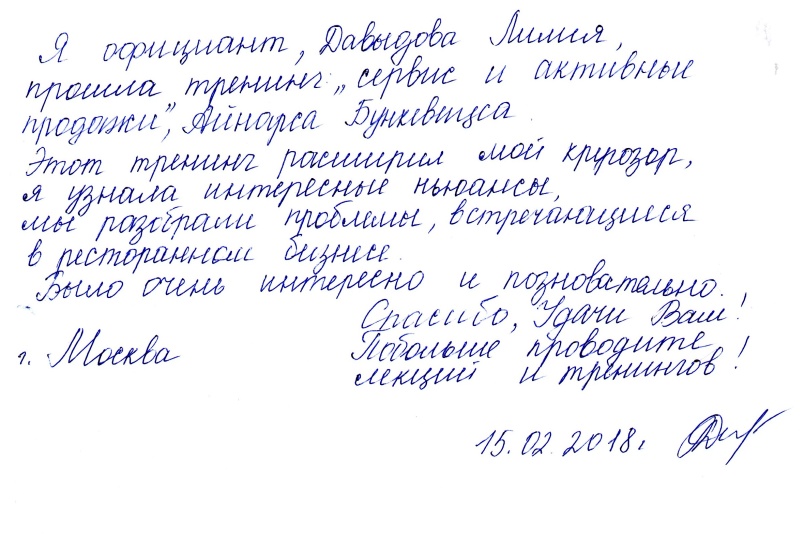 Я официант, Давыдова Лилия,
прошла тренинг „сервис и активные
продажи”, Айнарса Бункевицса.
Этот тренинг расширил мой кругозор,
я узнала интересные ньюансы,
мы разобрали проблемы, встречающиеся
в ресторанном бизнесе.
Было очень интересно и позновательно.
Спасибо, Удачи Вам!
Побольше проводите
лекций и тренингов!
г. Москва
15.02.2018г